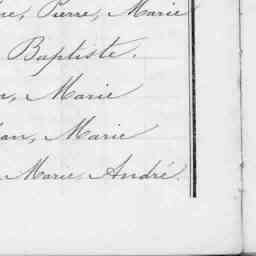 Pierre, Marie
Baptiste.
Marie
Marie
Marie André.